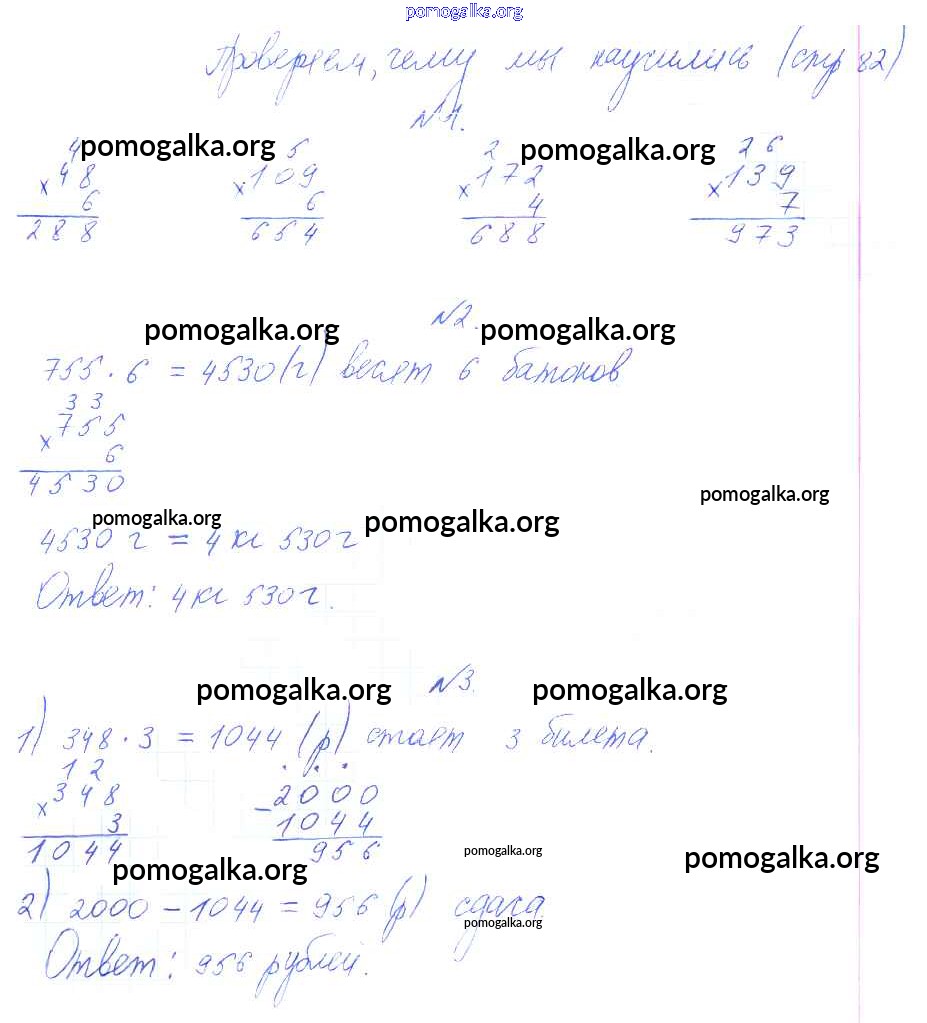 pomogalka.org
Проверяем, чему мы научились (стр 82)
№1.
pomogalka.org pomogalka.org
4 5 2 2 6
× 48 × 109 × 172 × 139
6 6 4 7
288 654 688 973
№2.
pomogalka.org pomogalka.org
755 · 6 = 4530 (г) весят 6 батонов
3 3
× 755
6
4530
pomogalka.org
pomogalka.org pomogalka.org
4530 г = 4 кг 530 г
Ответ: 4 кг 530 г.
№3.
pomogalka.org pomogalka.org
1) 348 · 3 = 1044 (р) стоят 3 билета.
1 2 . . .
× 348 − 2000
3 1044
1044 956
pomogalka.org pomogalka.org pomogalka.org
2) 2000 − 1044 = 956 (р) сдача.
pomogalka.org
Ответ: 956 рублей.